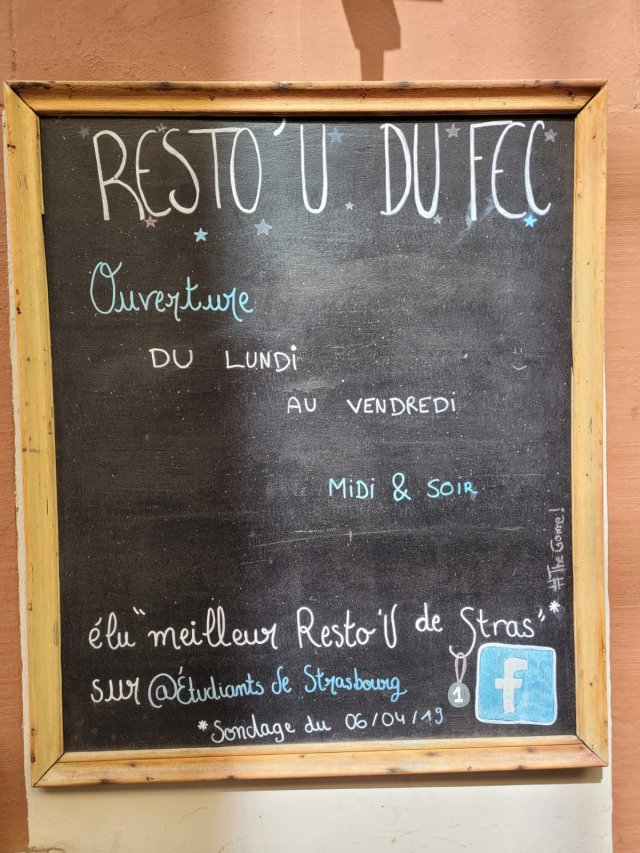 RESTO'U DU FEC
Ouverture
DU LUNDI
AU VENDREDI
MIDI & SOIR
#The Game!
élu "meilleur Resto'U de Stras"*
sur @Étudiants de Strasbourg
1
f
*Sondage du 06/04/19